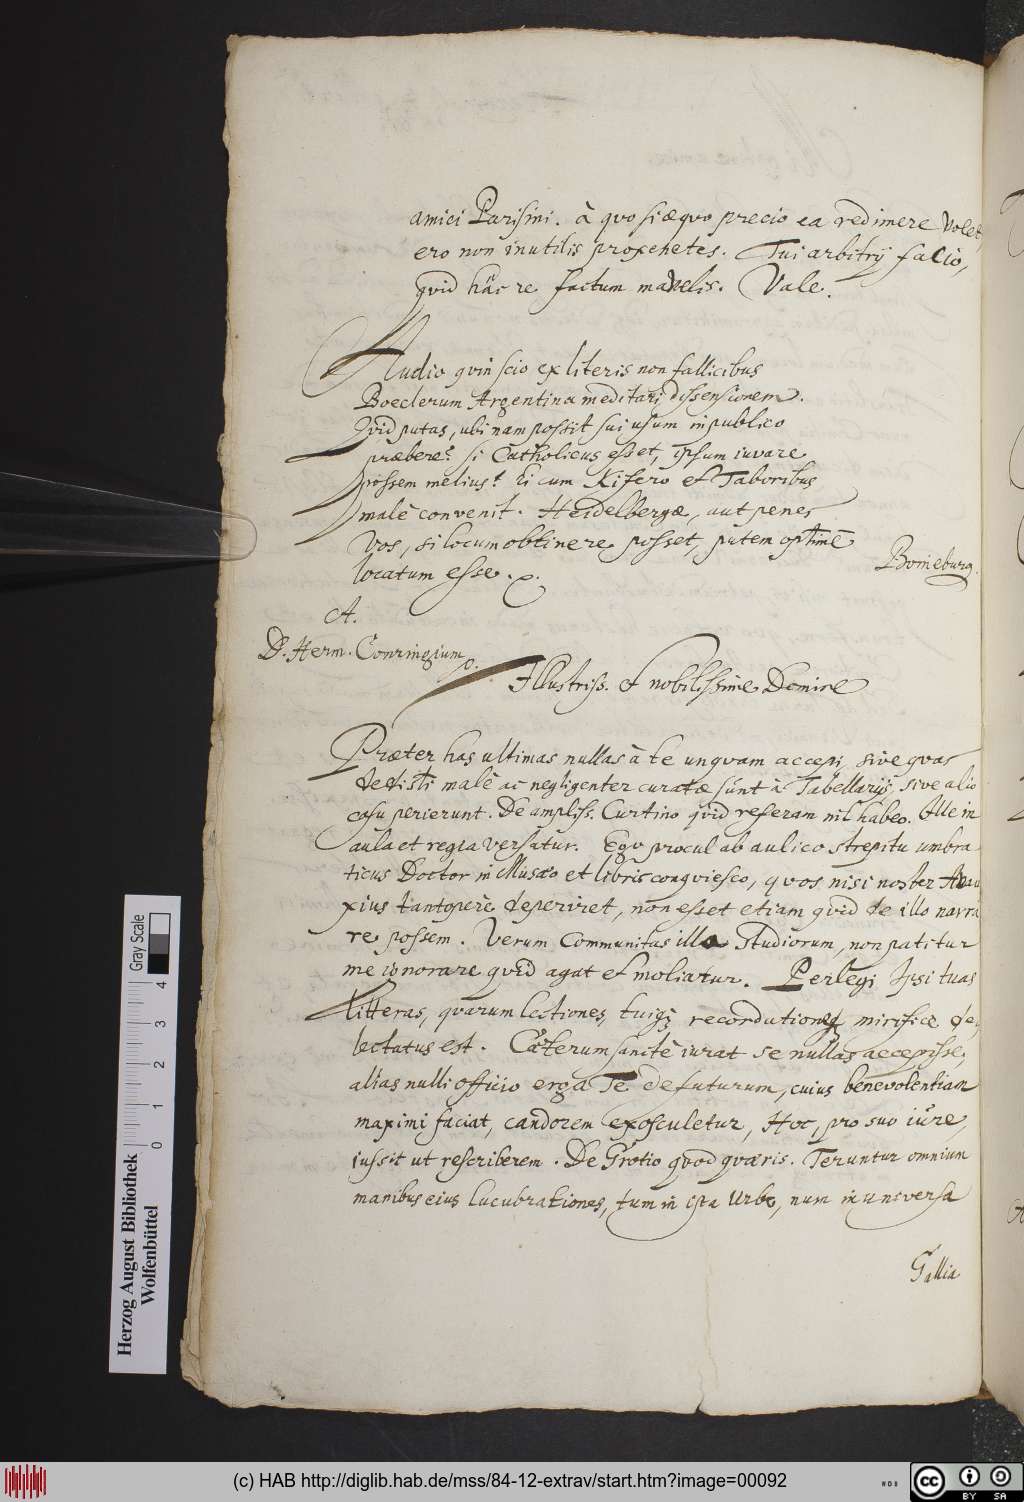 amici Parisini. à quo si æquo precio ea redimere volet
ero non inutilis proxenetes. Tui arbitrij facio,
quid hâc re factum malvelis. Vale.
Audio quin scio ex literis non fallicibus
Boeclerum Argentina meditari dissensionem.
Quid putas, ubi nam possit sui usum in publico
præbere? si Catholicus esset, ipsum iuvare
possem melius! Ei cum Kifero et Taboribus
malè convenit. Heidelbergæ, aut penes
Vos, si locum obtinere posset, putem optimè
locatum esse. p.
Boineburg.
A.
D. Herm. Conringium p.
Illustriss. & nobilissime Domine
Præter has ultimas nullas à te unquam accepi, sive quas
dedisti malè ac negligenter curatæ sunt à Tabellarijs, sive alio
casu perierunt. De ampliss. Curtino quid referam nil habeo. Ille in
aula et regia versatur. Ego procul ab aulico strepitu umbra-
ticus Doctor in Musæo et libris conquiesco, quos nisi noster
xius tantoperè deperiret, non esset etiam quid de illo narra
re possem. Verum Communitas illa Studiorum, non patitur
me ignorare quid agat et moliatur. Perlegi Ipsi tuas
litteras, quarum lectione, tuiq; recordationeq mirificè de-
lectatus est. Cæterum sanctè iurat se nullas accepisse,
alias nulli officio erga Te defuturum, cuius benevolentiam
maximi faciat, candorem exosculetur, Hoc, pro suo iûre,
iussit ut rescriberem. De Grotio quod quæris. Teruntur omnium
manibus eius lucubrationes, tum in ista Urbe, num in universa
Gallia
Gray Scale
0 1 2 3 4
Herzog August Bibliothek
Wolfenbüttel
(c) HAB http://diglib.hab.de/mss/84-12-extrav/start.htm?image=00092
WDB
cc BY SA